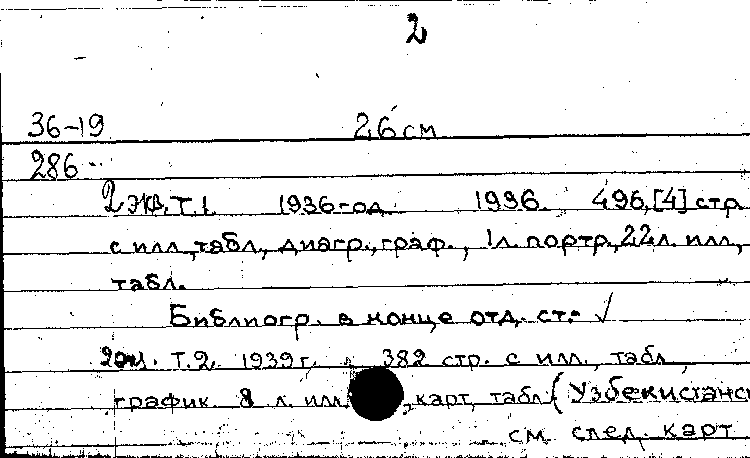 2
36-19 26 см
286
2 экз. Т.1. 1936 год 1936. 496,[4] стр.
с илл., табл., диагр., граф., 1 л. портр., 22 л. илл.,
табл.
Библиогр. в конце отд. ст. √
2 экз. Т.2. 1939 г. 382 стр. с илл., табл.,
график 8 л. илл., карт, табл. (Узбекистанс
см след. карт